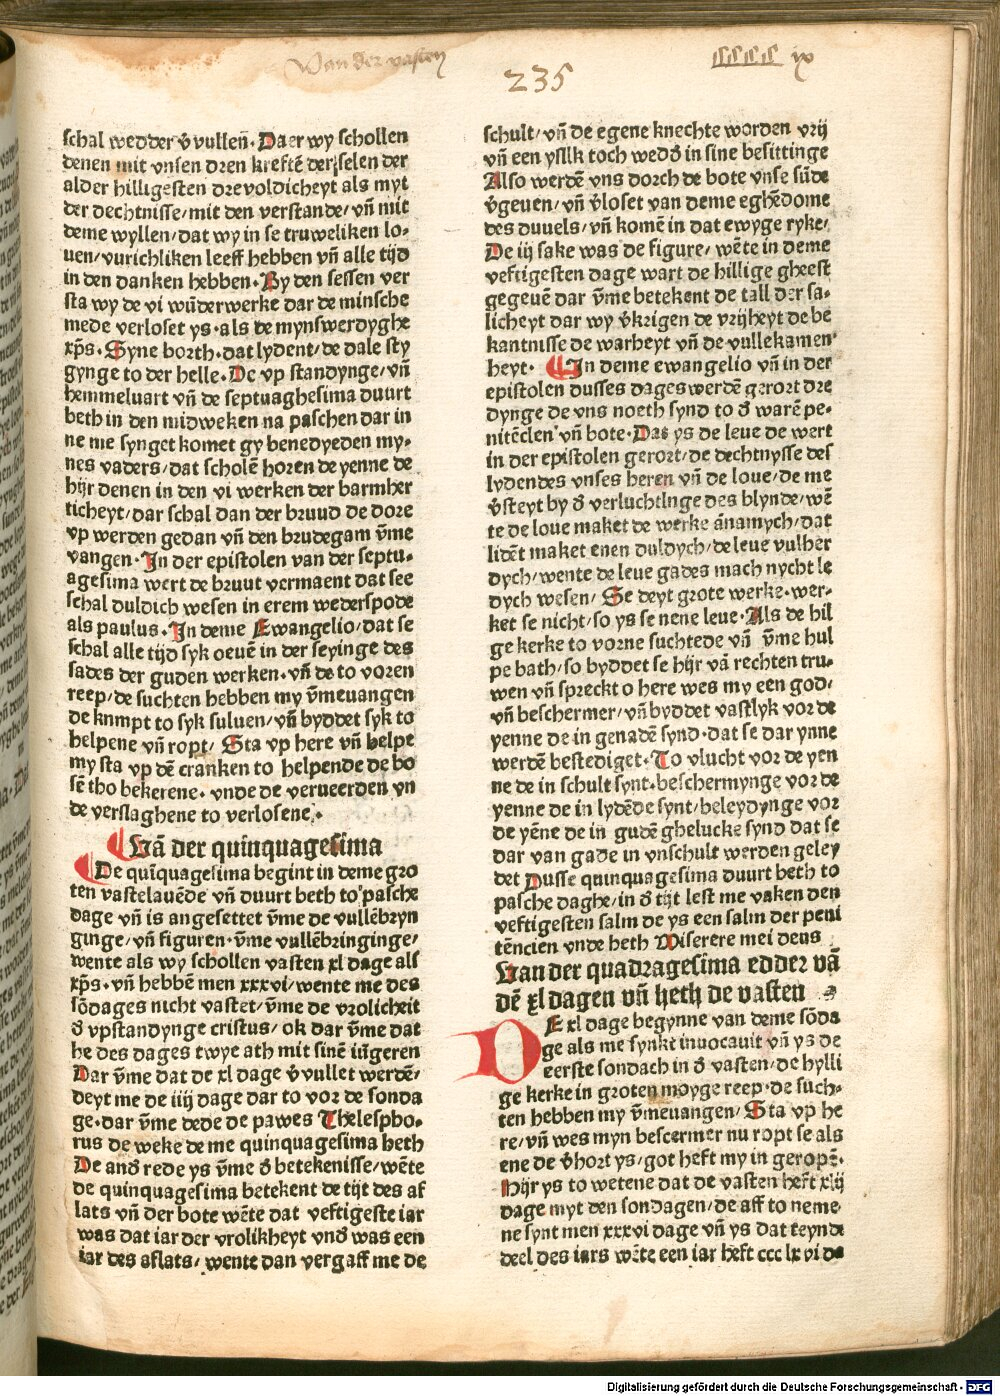 Van der vasten
235
schal wedder v̄ vullen̄. Daer wy schollen
denen mit vnsen dren kreftē der selen der
alder hilligesten drevoldicheyt als myt
der dechtnisse/mit den verstande/vn̄ mit
deme wyllen/dat wy in se truweliken lo-
uen/vurichliken leeff hebben vn̄ alle tijd
in den danken hebben. By den sessen ver
sta wy de vi wūderwerke dar de minsche
mede verloset ys. als de mynswerdyghe
xp̄s. Syne borth. dat lydent/de dale sty
gynge to der helle. De vp standynge/vn̄
hemmeluart vn̄ de septuaghesima duurt
beth in den midweken na paschen dar in
ne me synget komet gy benedyeden my-
nes vaders/dat scholē horen de yenne de
hijr denen in den vi werken der barmher
ticheyt/dar schal dan der bruud de dore
vp werden gedan vn̄ den brudegam v̄me
vangen. In der epistolen van der septu-
agesima wert de bruut vermaent dat see
schal duldich wesen in erem wederspode
als paulus. In deme Ewangelio/dat se
schal alle tijd syk oeuē in der seyinge des
sades der guden werken. vn̄ de to voren
reep/de suchten hebben my v̄meuangen
de knmpt to syk suluen/vn̄ byddet syk to
helpene vn̄ ropt/ Sta vp here vn̄ helpe
my sta vp dē cranken to helpende de bo
sē tho bekerene. vnde de verueerden vn
de verslaghene to verlosene.
Vā der quinquagesima
De quīquagesima begint in deme gro
ten vastelauēde vn̄ duurt beth to pasche
dage vn̄ is angesettet v̄me de vullēbryn
ginge/vn̄ figuren. v̄me vullēbringinge/
wente als wy schollen vasten xl dage als
xp̄s. vn̄ hebbē men xxxvi/wente me des
sōdages nicht vastet/v̄me de vrolicheit
d̄ vpstandynge cristus/ok dar v̄me dat
he des dages twye ath mit sinē iūgeren
Dar v̄me dat de xl dage v̄ vullet werdē/
deyt me de iiij dage dar to vor de sonda
ge. dar v̄me dede de pawes Thelespho-
rus de weke de me quinquagesima heth
De and̄ rede ys v̄me d̄ betekenisse/wēte
de quinquagesima betekent de tijt des af
lats vn̄ der bote wēte dat veftigeste iar
was dat iar der vrolikheyt vnd̄ was een
iar des aflats/wente dan vergaff me de
schult/vn̄ de egene knechte worden vrij
vn̄ een yslik toch wedd̄ in sine besittinge
Also werdē vns dorch de bote vnse sūde
v̄geuen/vn̄ v̄loset van deme eghēdome
des duuels/vn̄ komē in dat ewyge ryke/
De iij sake was de figure/wēte in deme
veftigesten dage wart de hillige gheest
gegeuē dar v̄me betekent de tall der sa-
licheyt dar wy v̄krigen de vrijheyt de be
kantnisse de warheyt vn̄ de vullekamen
heyt. In deme ewangelio vn̄ in der
epistolen dusses dages werdē gerort dre
dynge de vns noeth synd to d̄ warē pe-
nitēcien vn̄ bote. Das ys de leue de wert
in der epistolen gerort/de dechtnysse des
lydendes vnses heren vn̄ de loue/de me
v̄steyt by d̄ verluchtinge des blynde/wē
te de loue maket de werke ānamych/dat
lidēt maket enen duldych/de leue vulher
dych/wente de leue gades mach nycht le
dych wesen/ Se deyt grote werke. wer-
ket se nicht/so ys se nene leue. Als de hil
ge kerke to vorne suchtede vn̄ v̄me hul
pe bath/so byddet se hijr vā rechten tru-
wen vn̄ spreckt o here wes my een god/
vn̄ beschermer/vn̄ byddet vastlyk vor de
yenne de in genadē synd. dat se dar ynne
werdē bestediget. To vlucht vor de yen
ne de in schult synt. beschermynge vor de
yenne de in lydēde synt/beleydynge vor
de yēne de in gudē ghelucke synd dat se
dar van gade in vnschult werden geley
det Dusse quinquagesima duurt beth to
pasche daghe/in d̄ tijt lest me vaken den
veftigesten salm de ys een salm der peni
tēncien vnde heth Miserere mei deus
Van der quadragesima edder vā
dē xl dagen vn̄ heth de vasten
DE xl dage begynne van deme sōda
ge als me synkt inuocauit vn̄ ys de
eerste sondach in d̄ vasten/de hylli
ge kerke in groten moyge reep. de such-
ten hebben my v̄meuangen/ Sta vp he
re/vn̄ wes myn bescermer nu ropt se als
ene de v̄hort ys/got heft my in geropē.
Hijr ys to wetene dat de vasten heft xlij
dage myt den sondagen/de aff to neme-
ne synt men xxxvi dage vn̄ ys dat teynde
deel des iars wēte een iar heft ccc lx vi da
Digitalisierung gefördert durch die Deutsche Forschungsgemeinschaft - DFG